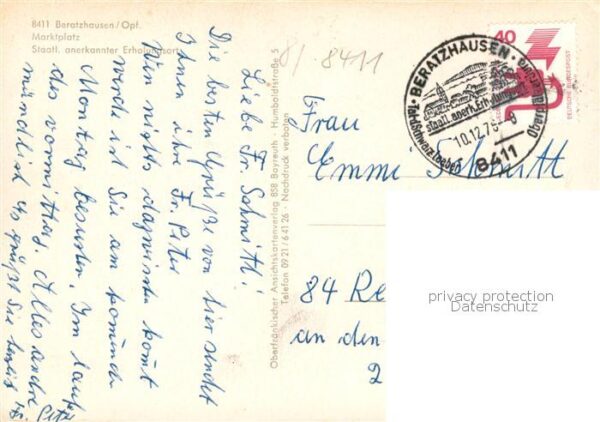 8411 Beratzhausen/Opf.
Marktplatz
Staatl. anerkannter Erholungsort
8/ 8411
Liebe Fr. Schmitt!
Die besten Grüße von hier sendet
Ihnen ihre Fr. Peter
Wenn nichts dazwischen kommt
werde ich Sie am kommenden
Montag besuchen. Im Laufe
des vormittag. Alles andre
mündlich es grüßt Sie herzlich
Fr. Peter
Oberfränkischer Ansichtskartenverlag 858 Bayreuth · Humboldtstraße 5
Telefon 0921/64126 · Nachdruck verboten
40
DEUTSCHE BUNDESPOST
BERATZHAUSEN
Staatl. anerk. Erholungsort
10.12.75
8411
Frau
Emmi Schmitt
84 Re
an den
2
privacy protection
Datenschutz